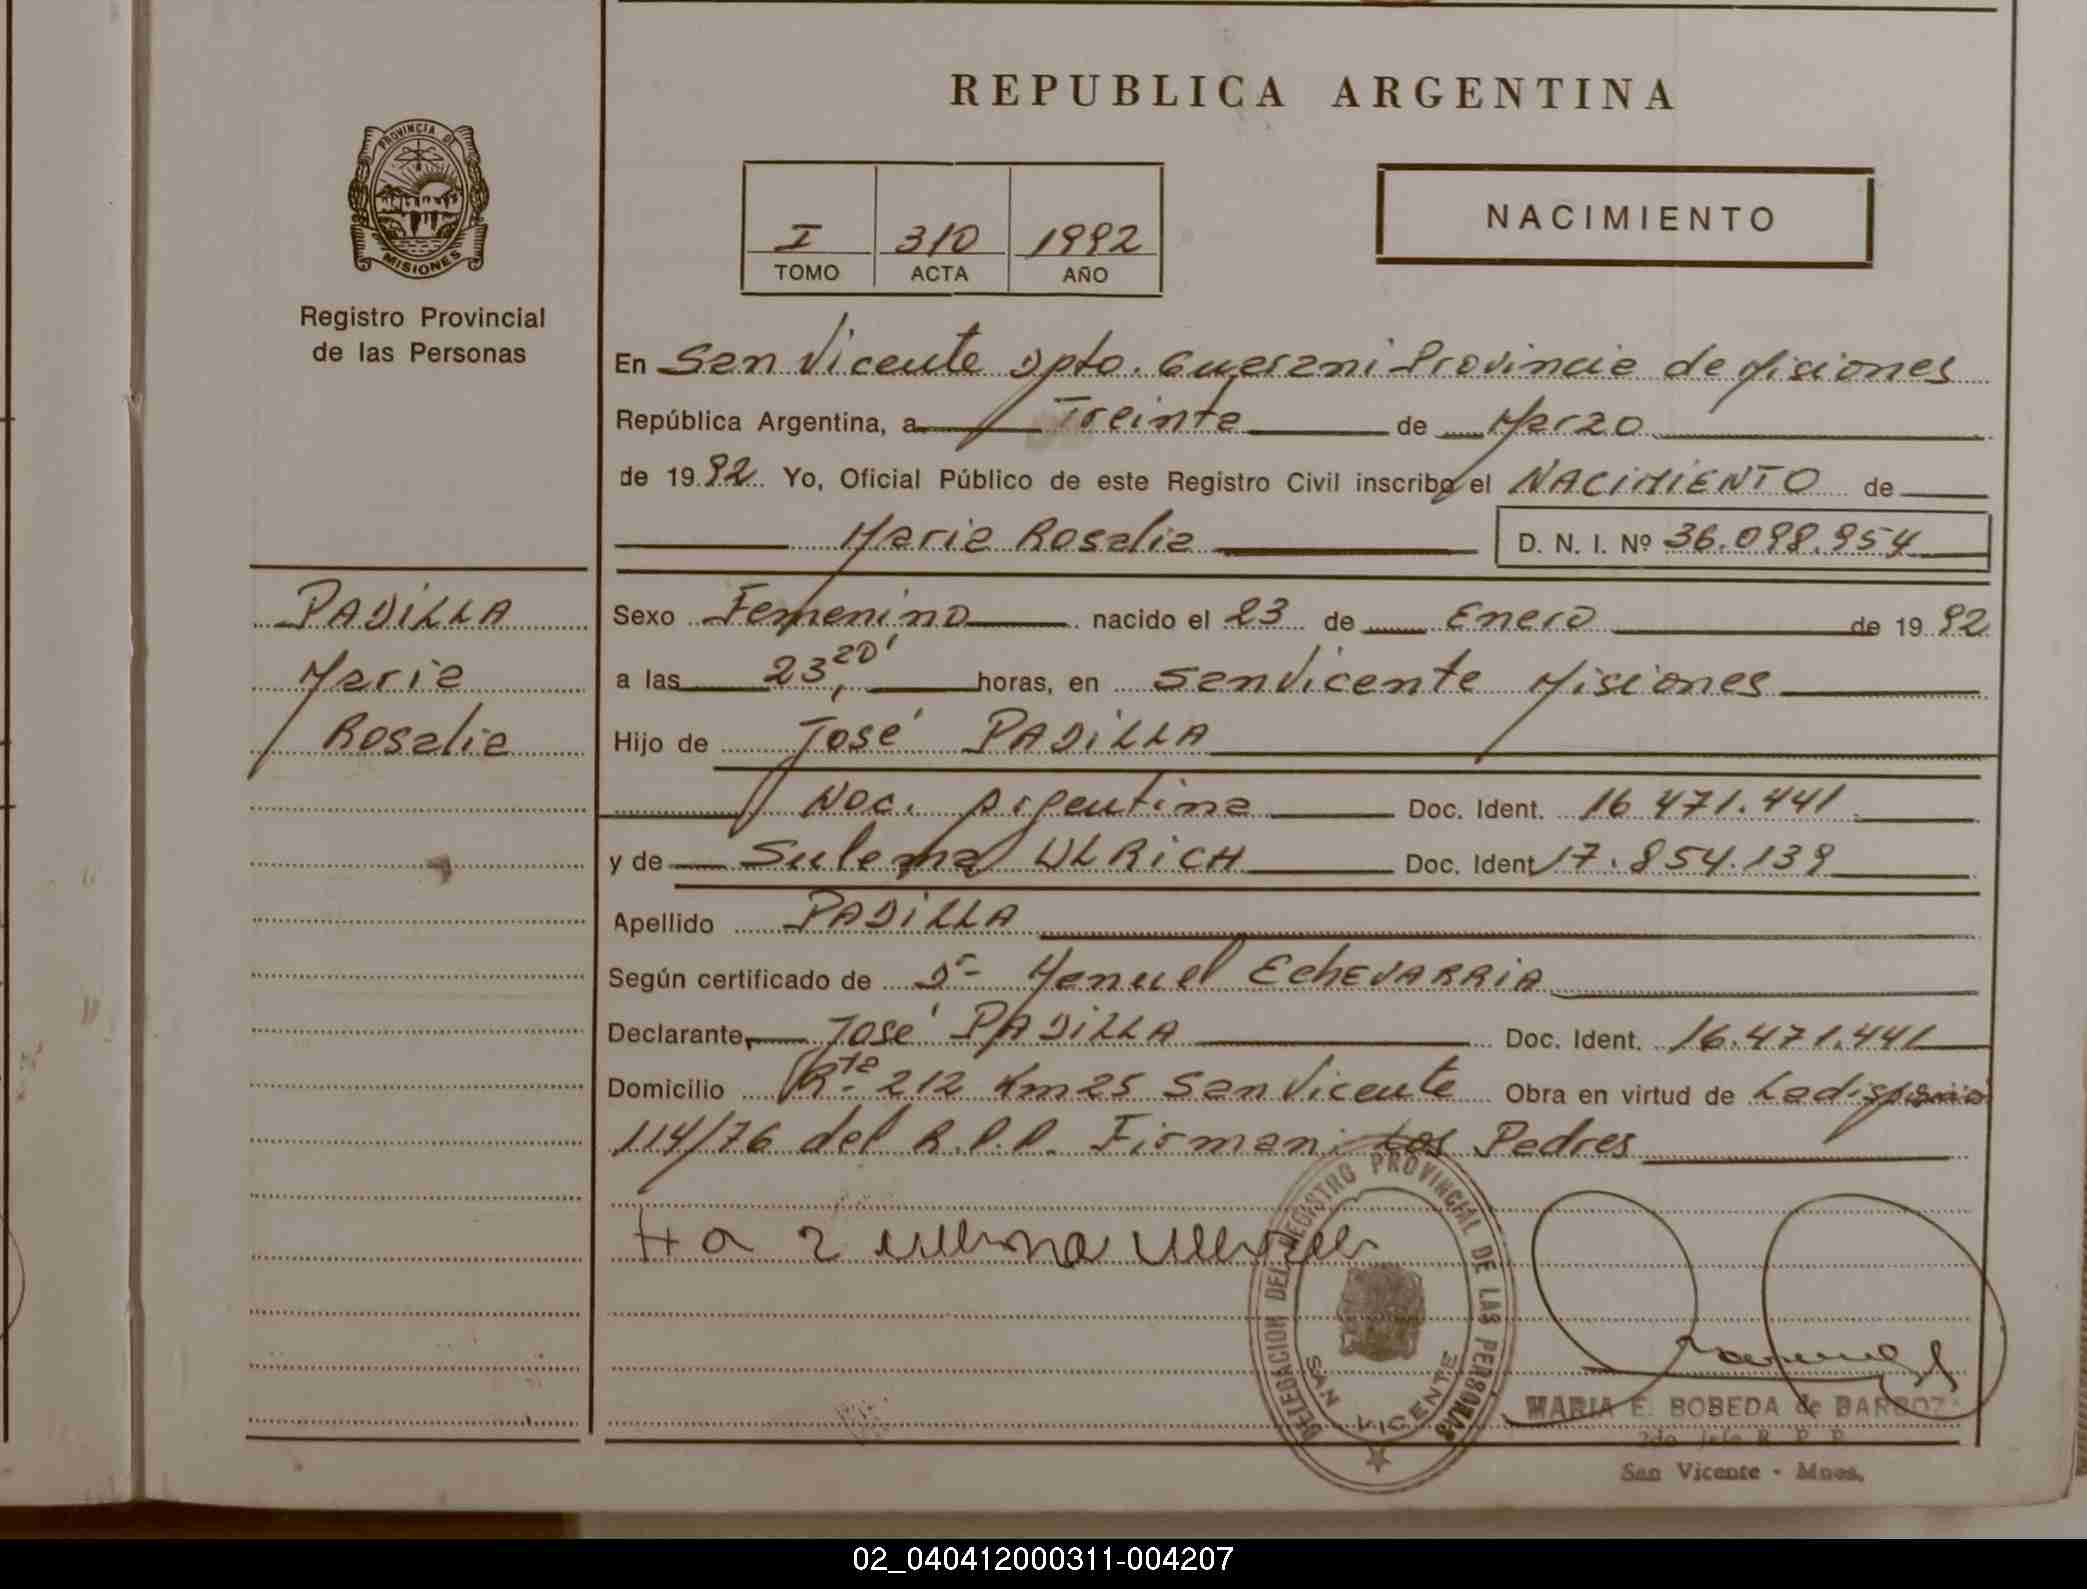 REPUBLICA ARGENTINA
PROVINCIA DE
MISIONES
Registro Provincial
de las Personas
I 310 1992
TOMO ACTA AÑO
NACIMIENTO
En San Vicente Dpto. Guarani Provincia de Misiones
República Argentina, a Treinta de Marzo
de 1992 Yo, Oficial Público de este Registro Civil inscribo el NACIMIENTO de
Maria Rosalia D. N. I. Nº 36.098.954
PADILLA
Maria
Rosalia
Sexo Femenino nacido el 23 de Enero de 1992
a las 23,20' horas, en San Vicente Misiones
Hijo de José PADILLA
Nac. Argentina Doc. Ident. 16.471.441
y de Sulema ULRICH Doc. Ident 17.854.139
Apellido PADILLA
Según certificado de Dr- Manuel EchEVARRiA
Declarante José PADILLA Doc. Ident. 16.471.441
Domicilio Rta 212 Km 25 San Vicente Obra en virtud de La disposició
114/76 del R.P.P. Firman Los Padres
DELEGACION DEL REGISTRO PROVINCIAL DE LAS PERSONAS
SAN VICENTE
MARIA E. BOBEDA de BARBOZA
2do Jefe R. P. P.
San Vicente - Mnes.
02_040412000311-004207